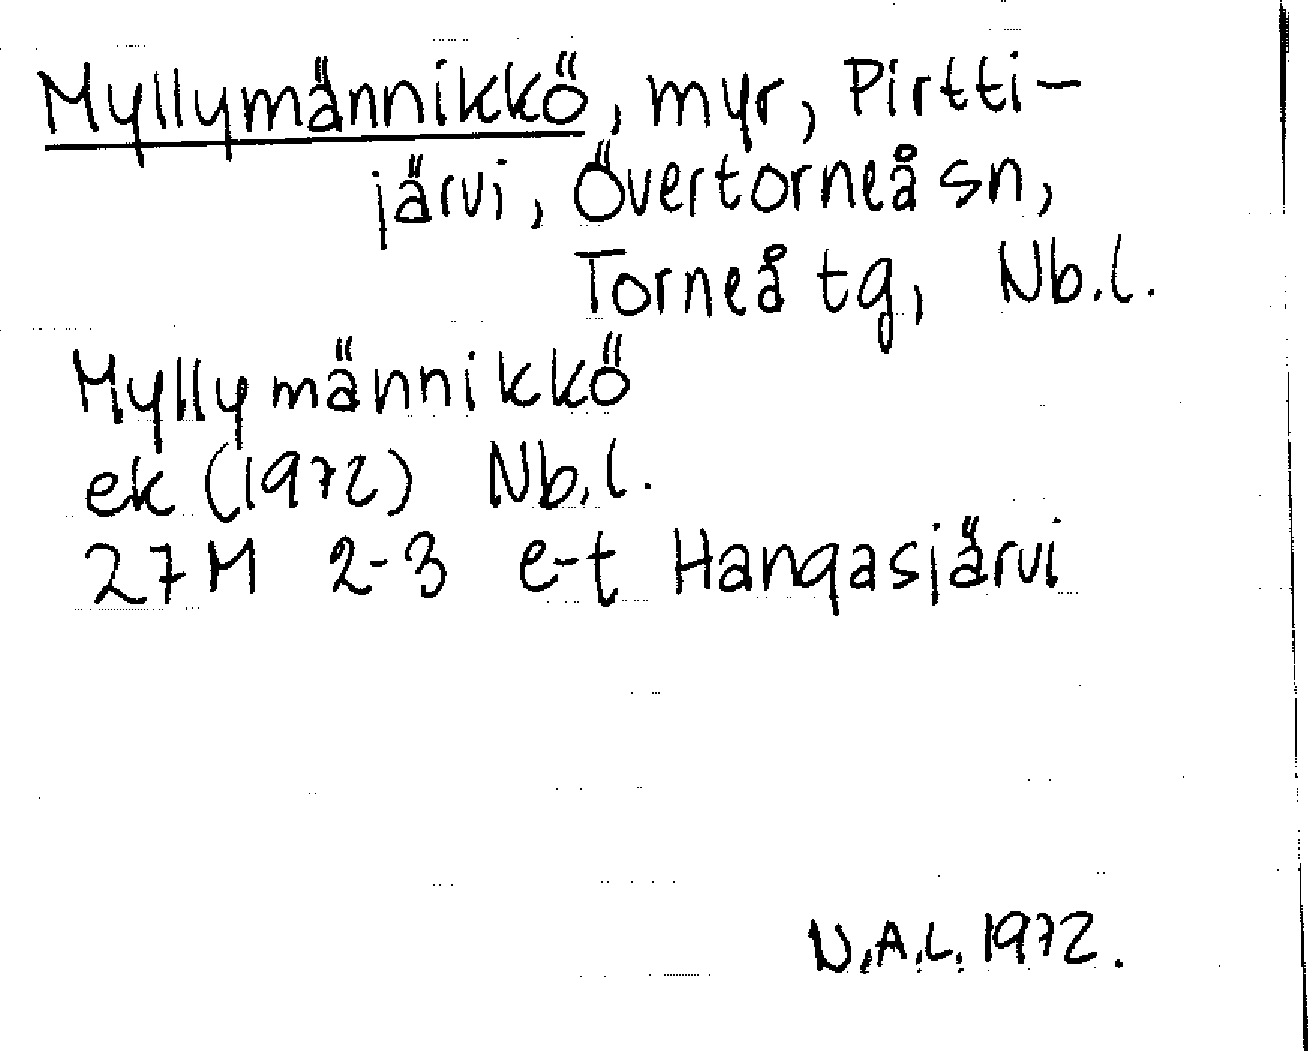 Myllymännikkö, myr, Pirtti-
järvi, Övertorneå sn,
Torneå tg, Nb.l.
Myllymännikkö
ek (1972) Nb.l.
27M 2-3 e-t Hangasjärvi
N.A.L. 1972.